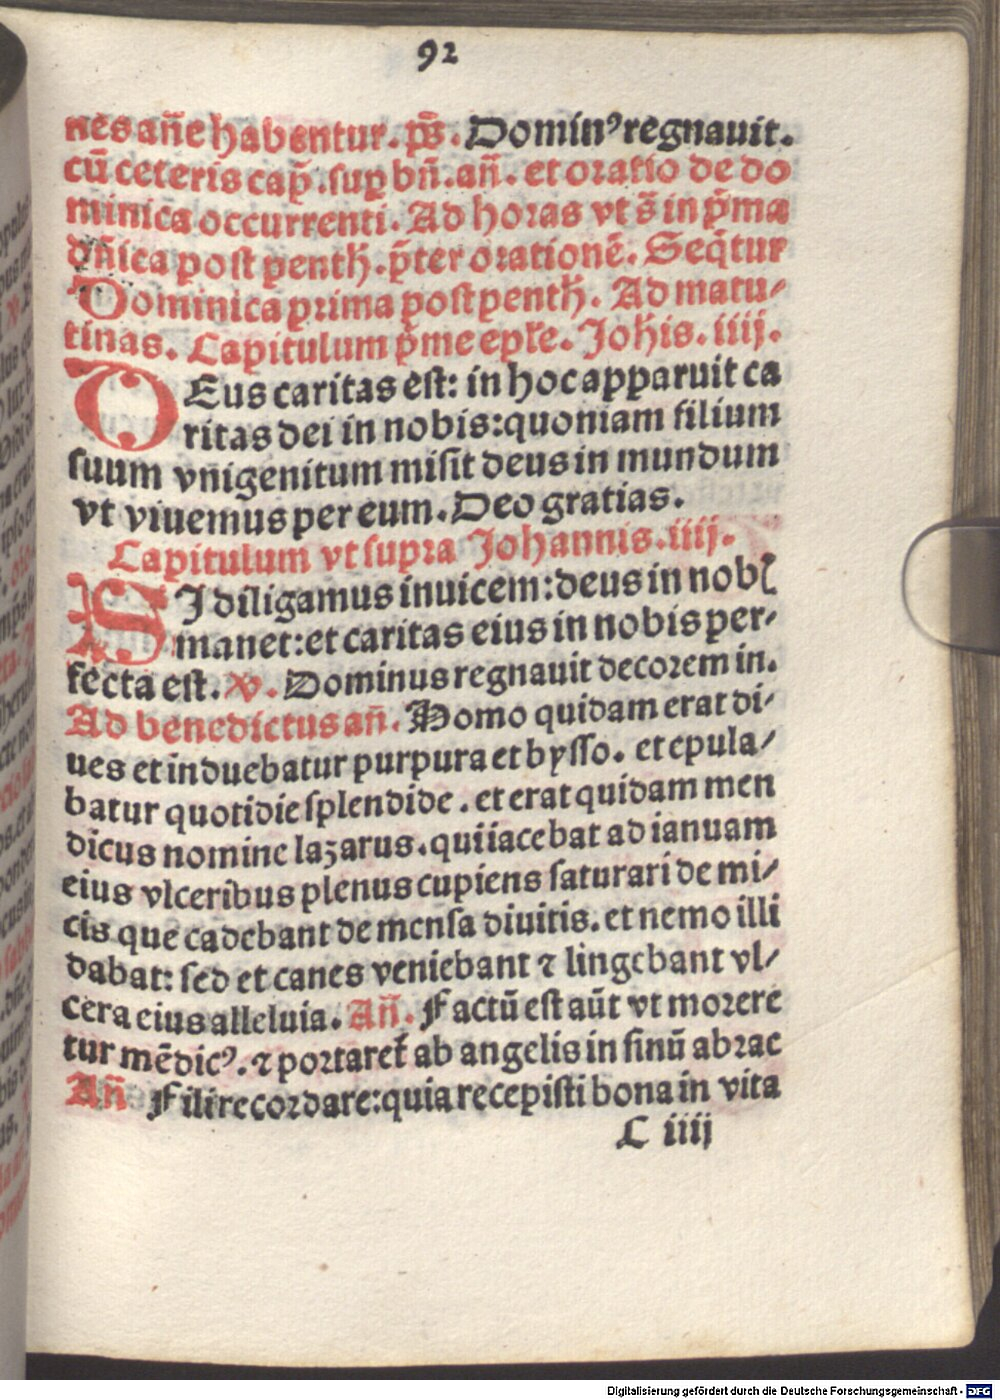 92
nes añe habentur. ps̃. Dominꝰ regnauit.
cū ceteris cap̃. sup bñ. añ. et oratio de do
minica occurrenti. Ad horas vt s̃ in p̃ma
dñica post penth̃. p̃ter orationē. Seq̃tur
Dominica prima post penth̃. Ad matu-
tinas. Capitulum p̃me epl̃e. Joh̃is. iiij.
DEus caritas est: in hoc apparuit ca
ritas dei in nobis: quoniam filium
suum vnigenitum misit deus in mundum
vt viuemus per eum. Deo gratias.
Capitulum vt supra Johannis. iiij.
SJ diligamus inuicem: deus in nobꝭ
manet: et caritas eius in nobis per-
fecta est. ℣. Dominus regnauit decorem in.
Ad benedictus añ. Homo quidam erat di-
ues et induebatur purpura et bysso. et epula-
batur quotidie splendide. et erat quidam men
dicus nomine lazarus. qui iacebat ad ianuam
eius vlceribus plenus cupiens saturari de mi-
cis que cadebant de mensa diuitis. et nemo illi
dabat: sed et canes veniebant ⁊ lingebant vl-
cera eius alleluia. Añ. Factū est aūt vt morere
tur mēdicꝰ. ⁊ portaret̃ ab angelis in sinū abrae
Añ Fili recordare: quia recepisti bona in vita
C iiij
Digitalisierung gefördert durch die Deutsche Forschungsgemeinschaft - DFG